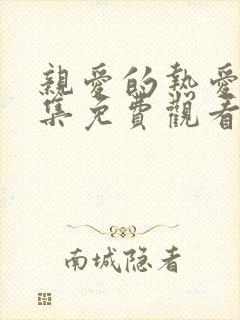 親愛的熱愛
集免費觀看
南城隐者